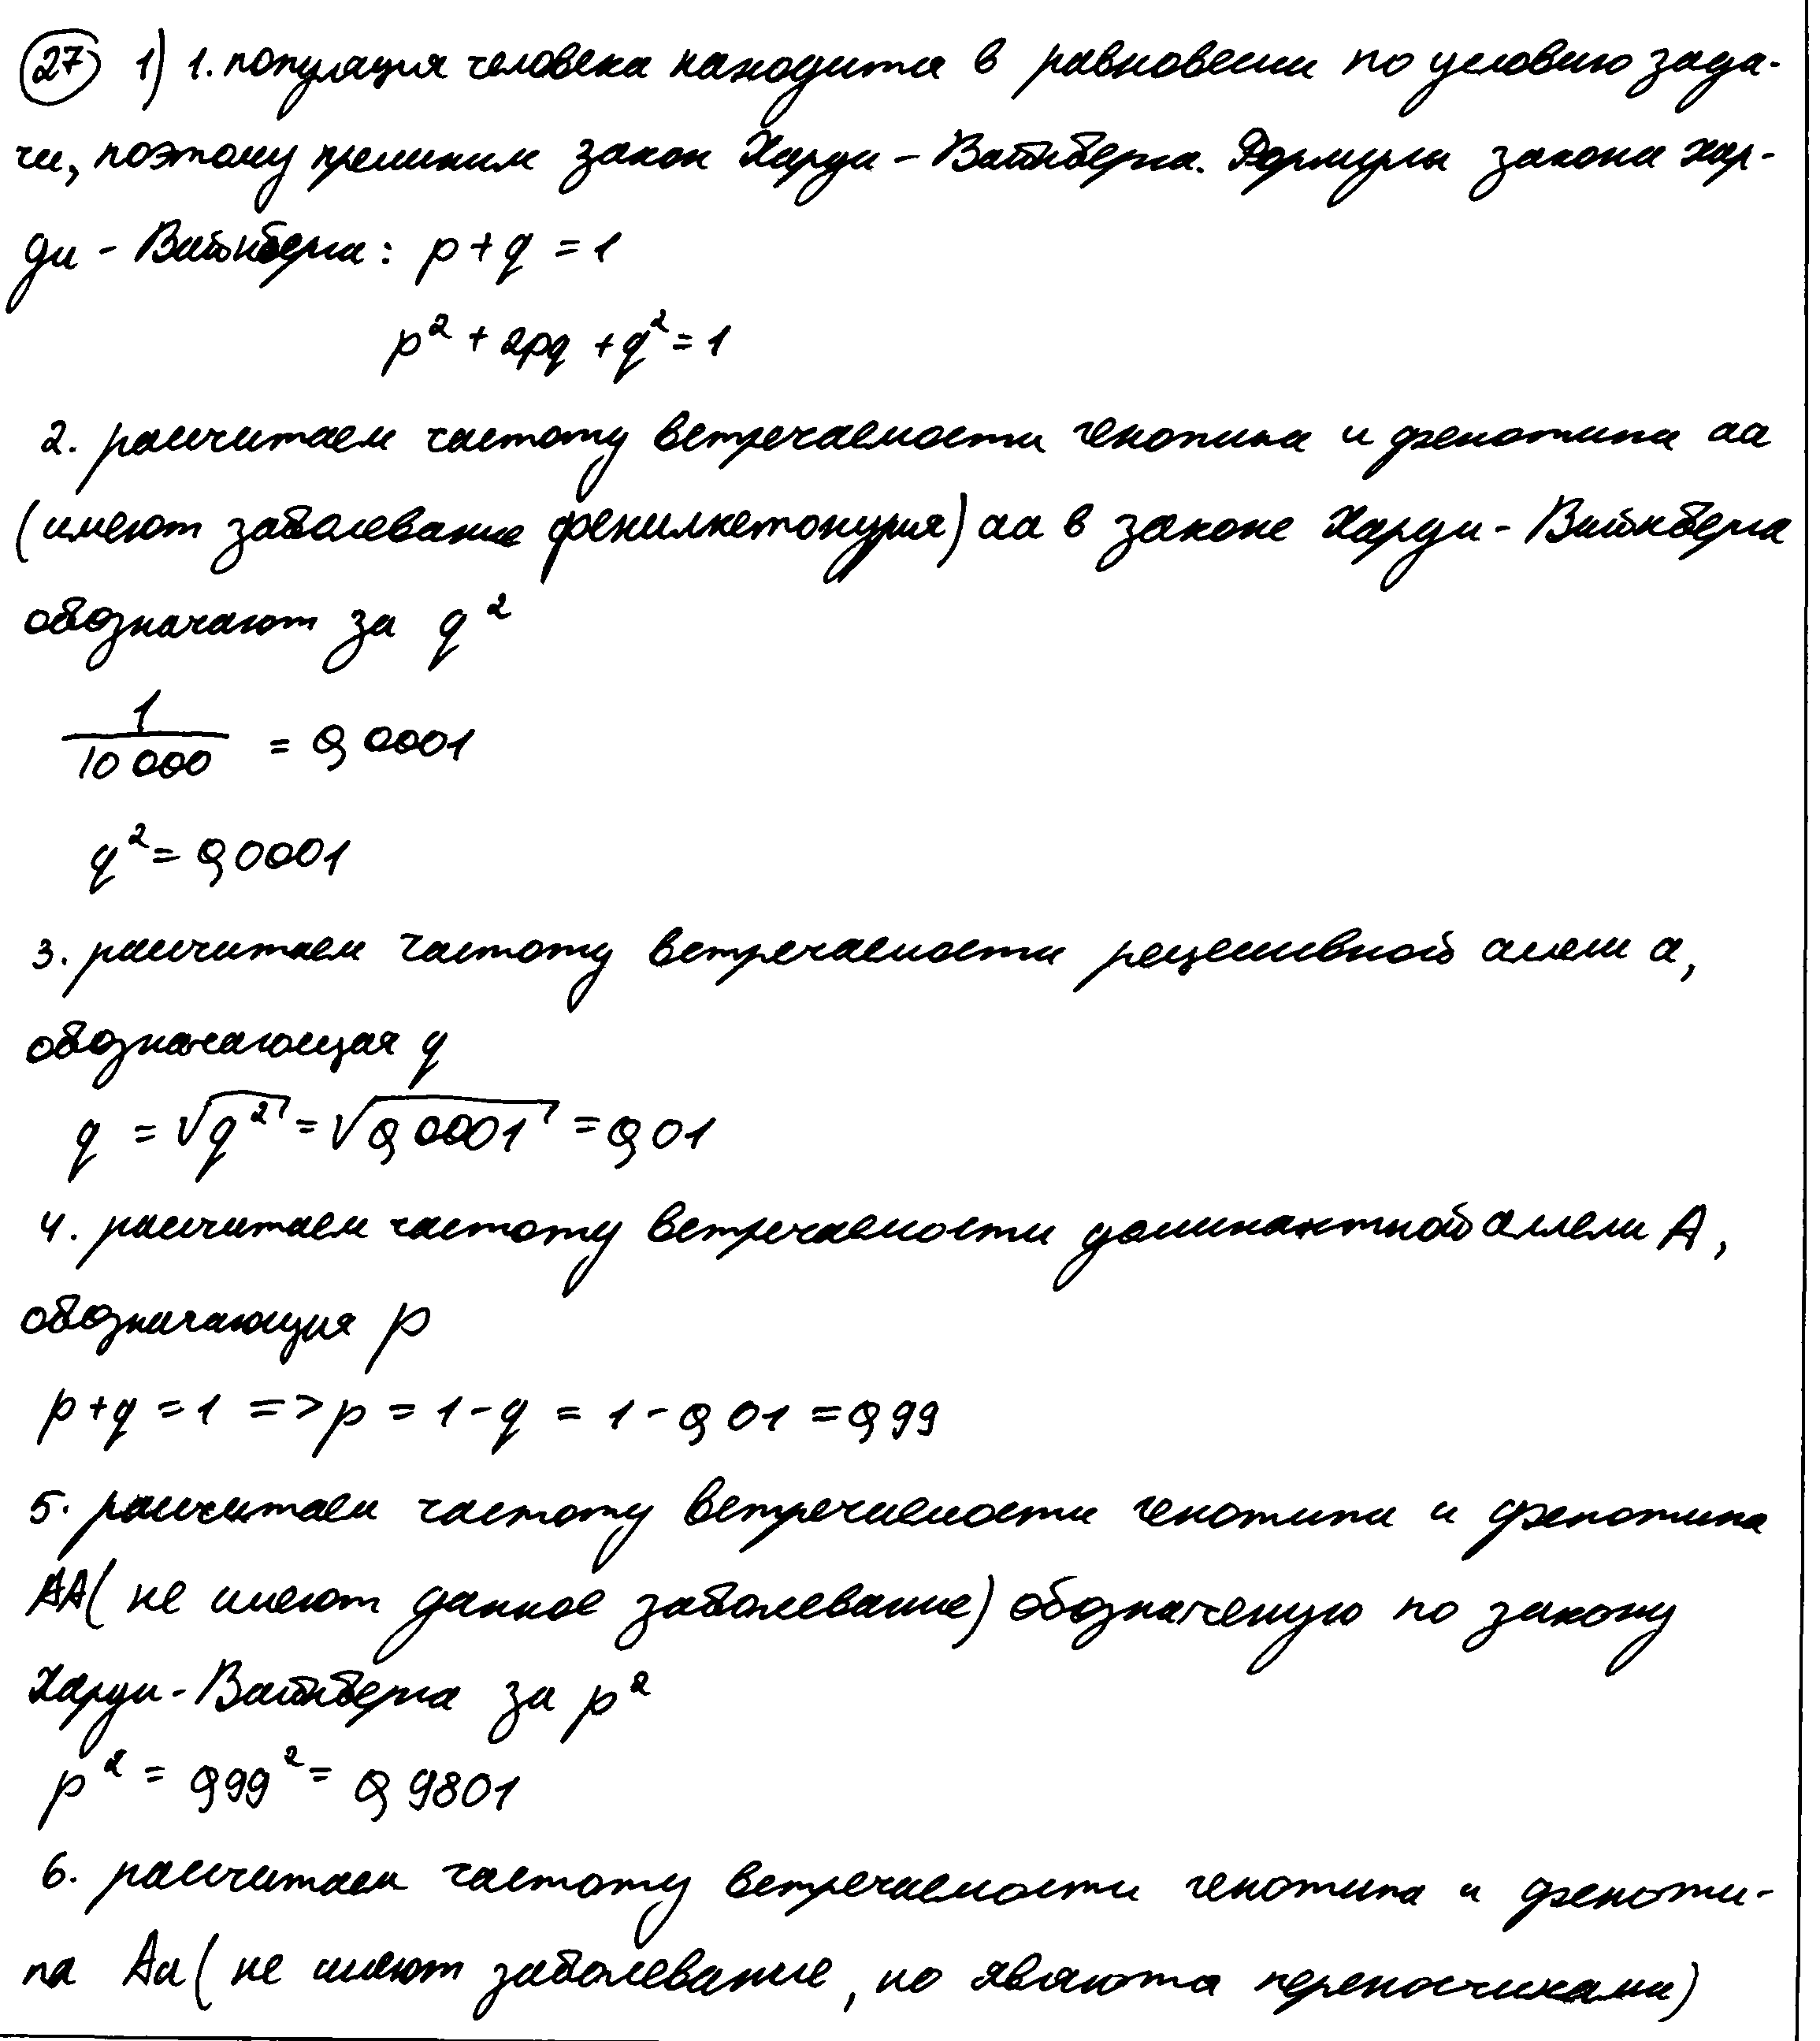 27 1) 1. популяция человека находится в равновесии по условию зада-
чи, поэтому применим закон Харди - Вайнберга. Формулы закона Хар-
ди - Вайнберга: p + q = 1
p² + 2pq + q² = 1
2. рассчитаем частоту встречаемости генотипа и фенотипа aa
(имеют заболевание фенилкетонурия) aa в законе Харди - Вайнберга
обозначают за q²
1/10 000 = 0,0001
q² = 0,0001
3. рассчитаем частоту встречаемости рецессивной аллели a,
обозначающая q
q = √q² = √0,0001 = 0,01
4. рассчитаем частоту встречаемости доминантной аллели A,
обозначающия p
p + q = 1 => p = 1 - q = 1 - 0,01 = 0,99
5. рассчитаем частоту встречаемости генотипа и фенотипа
AA ( не имеют данное заболевание) обозначеную по закону
Харди - Вайнберга за p²
p² = 0,99² = 0,9801
6. рассчитаем частоту встречаемости генотипа и феноти-
па Aa ( не имеют заболевание, но являются переносчиками)